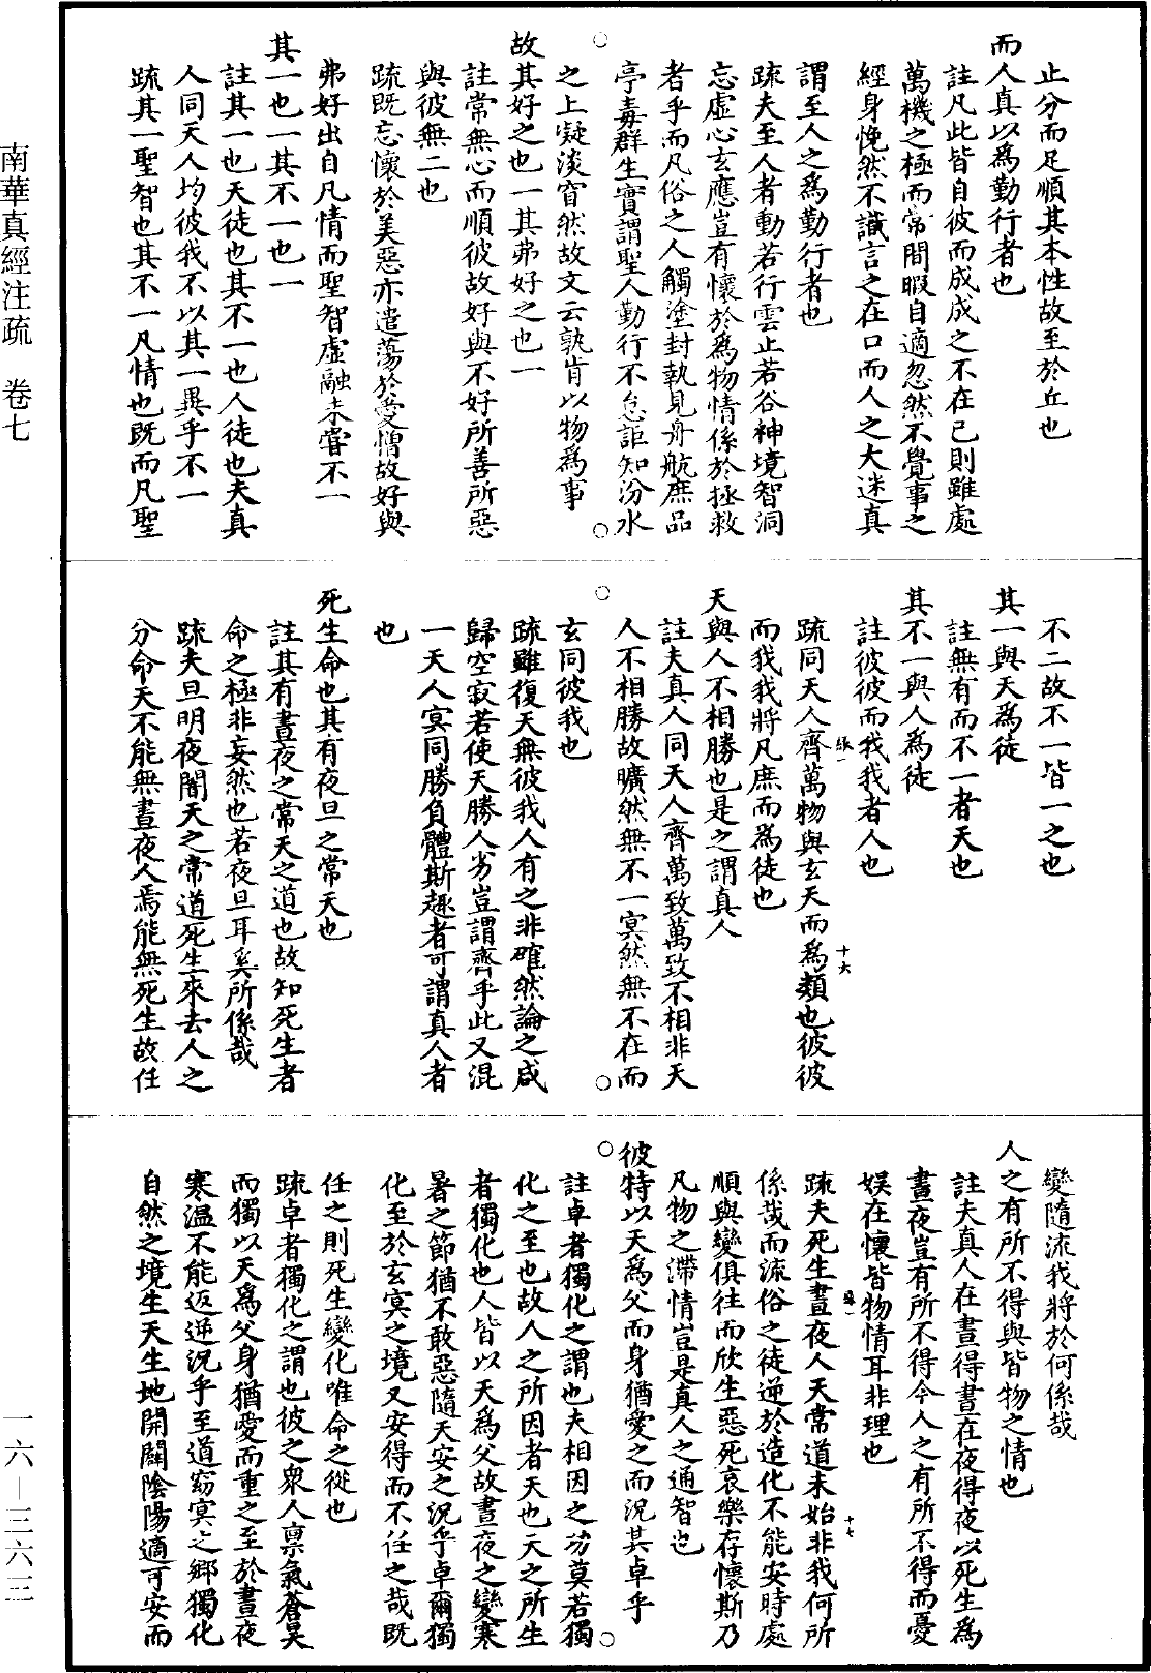 止分而足順其本性故至於丘也
而人真以為勤行者也
註凡此皆自彼而成成之不在己則雖處
萬機之極而常閒暇自適忽然不覺事之
經身悗然不識言之在口而人之大迷真
謂至人之為勤行者也
疏夫至人者動若行雲止若谷神境智洞
忘虛心玄應豈有懷於為物情係於拯救
者乎而凡俗之人觸塗封執見舟航庶品
亭毒群生實謂聖人勤行不怠詎知汾水
之上凝淡窅然故文云孰肯以物為事
故其好之也一其弗好之也一
註常無心而順彼故好與不好所善所惡
與彼無二也
疏既忘懷於美惡亦遣蕩於愛憎故好與
弗好出自凡情而聖智虛融未嘗不一
其一也一其不一也一
註其一也天徒也其不一也人徒也夫真
人同天人均彼我不以其一異乎不一
疏其一聖智也其不一凡情也既而凡聖
不二故不一皆一之也
其一與天為徒
註無有而不一者天也
其不一與人為徒
註彼彼而我我者人也
疏同天人齊萬物與玄天而為類也彼彼
而我我將凡庶而為徒也
天與人不相勝也是之謂真人
註夫真人同天人齊萬致萬致不相非天
人不相勝故曠然無不一冥然無不在而
玄同彼我也
疏雖復天無彼我人有之非確然論之咸
歸空寂若使天勝人劣豈謂齊乎此又混
一天人冥同勝負體斯趣者可謂真人者
也
死生命也其有夜旦之常天也
註其有晝夜之常天之道也故知死生者
命之極非妄然也若夜旦耳奚所係哉
疏夫旦明夜闇天之常道死生來去人之
分命天不能無晝夜人焉能無死生故任
變隨流我將於何係哉
人之有所不得與皆物之情也
註夫真人在晝得晝在夜得夜以死生為
晝夜豈有所不得今人之有所不得而憂
娱在懷皆物情耳非理也
疏夫死生晝夜人天常道未始非我何所
係哉而流俗之徒逆於造化不能安時處
順與變俱往而欣生惡死哀樂存懷斯乃
凡物之滯情豈是真人之通智也
彼特以天為父而身猶愛之而況其卓乎
註卓者獨化之謂也夫相因之功莫若獨
化之至也故人之所因者天也天之所生
者獨化也人皆以天為父故晝夜之變寒
暑之節猶不敢惡隨天安之況乎卓爾獨
化至於玄冥之境又安得而不任之哉既
任之則死生變化唯命之從也
疏卓者獨化之謂也彼之眾人禀氣蒼昊
而獨以天為父身猶愛而重之至於晝夜
寒溫不能返逆況乎至道窈冥之鄉獨化
自然之境生天生地開闢陰陽適可安而
十六
十七
南華真經注疏　卷七
一六—三六三